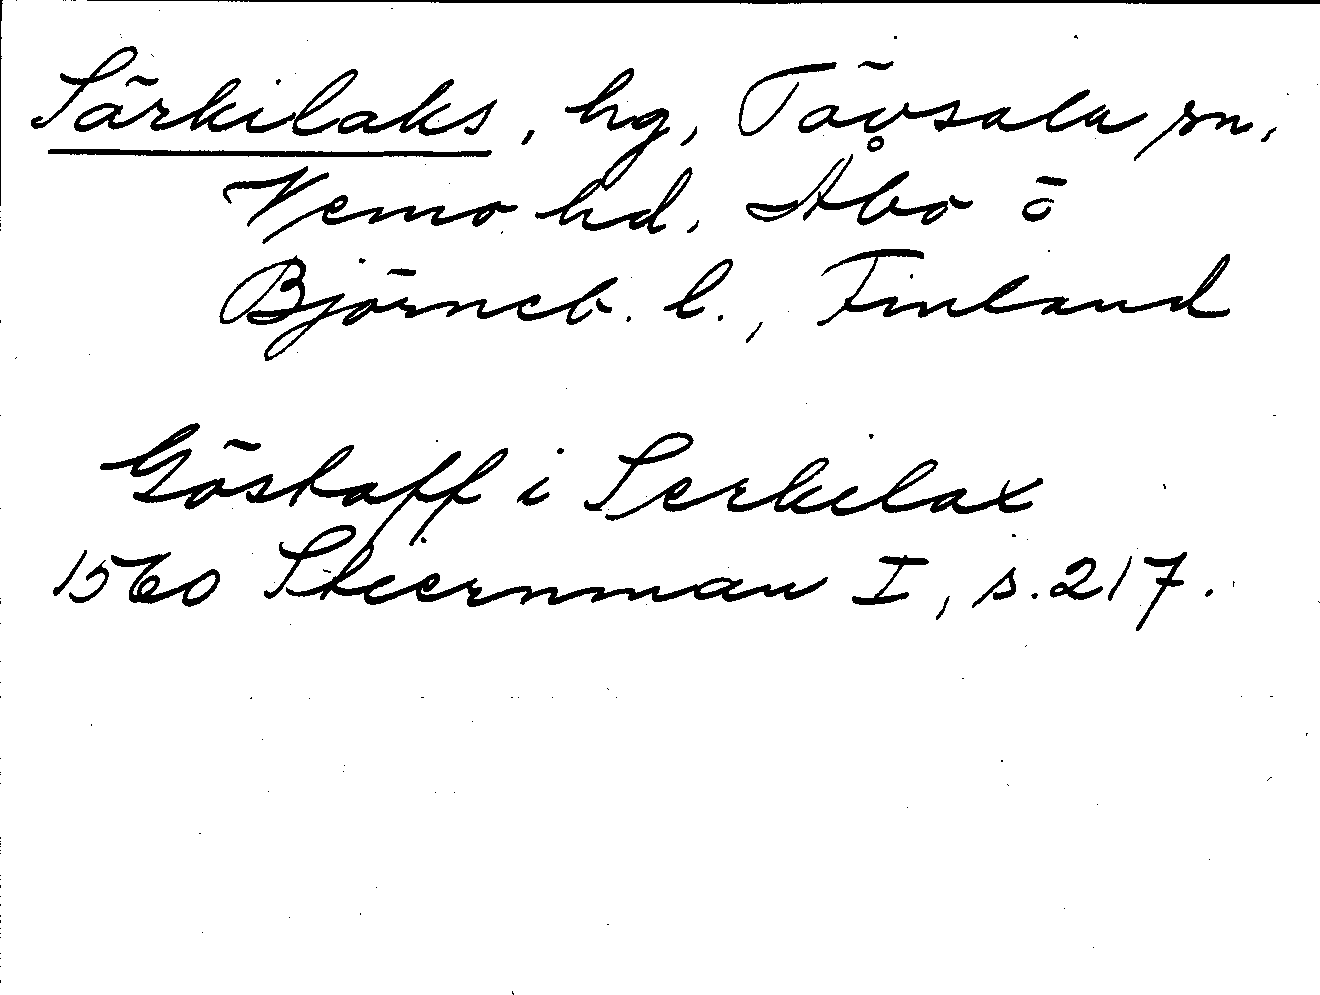 Särkilaks, hg, Tövsala sn,
Vemo hd. Åbo o
Björneb. l., Finland
Göstaff i Serkilax
1560 Stiernman I, s. 217.